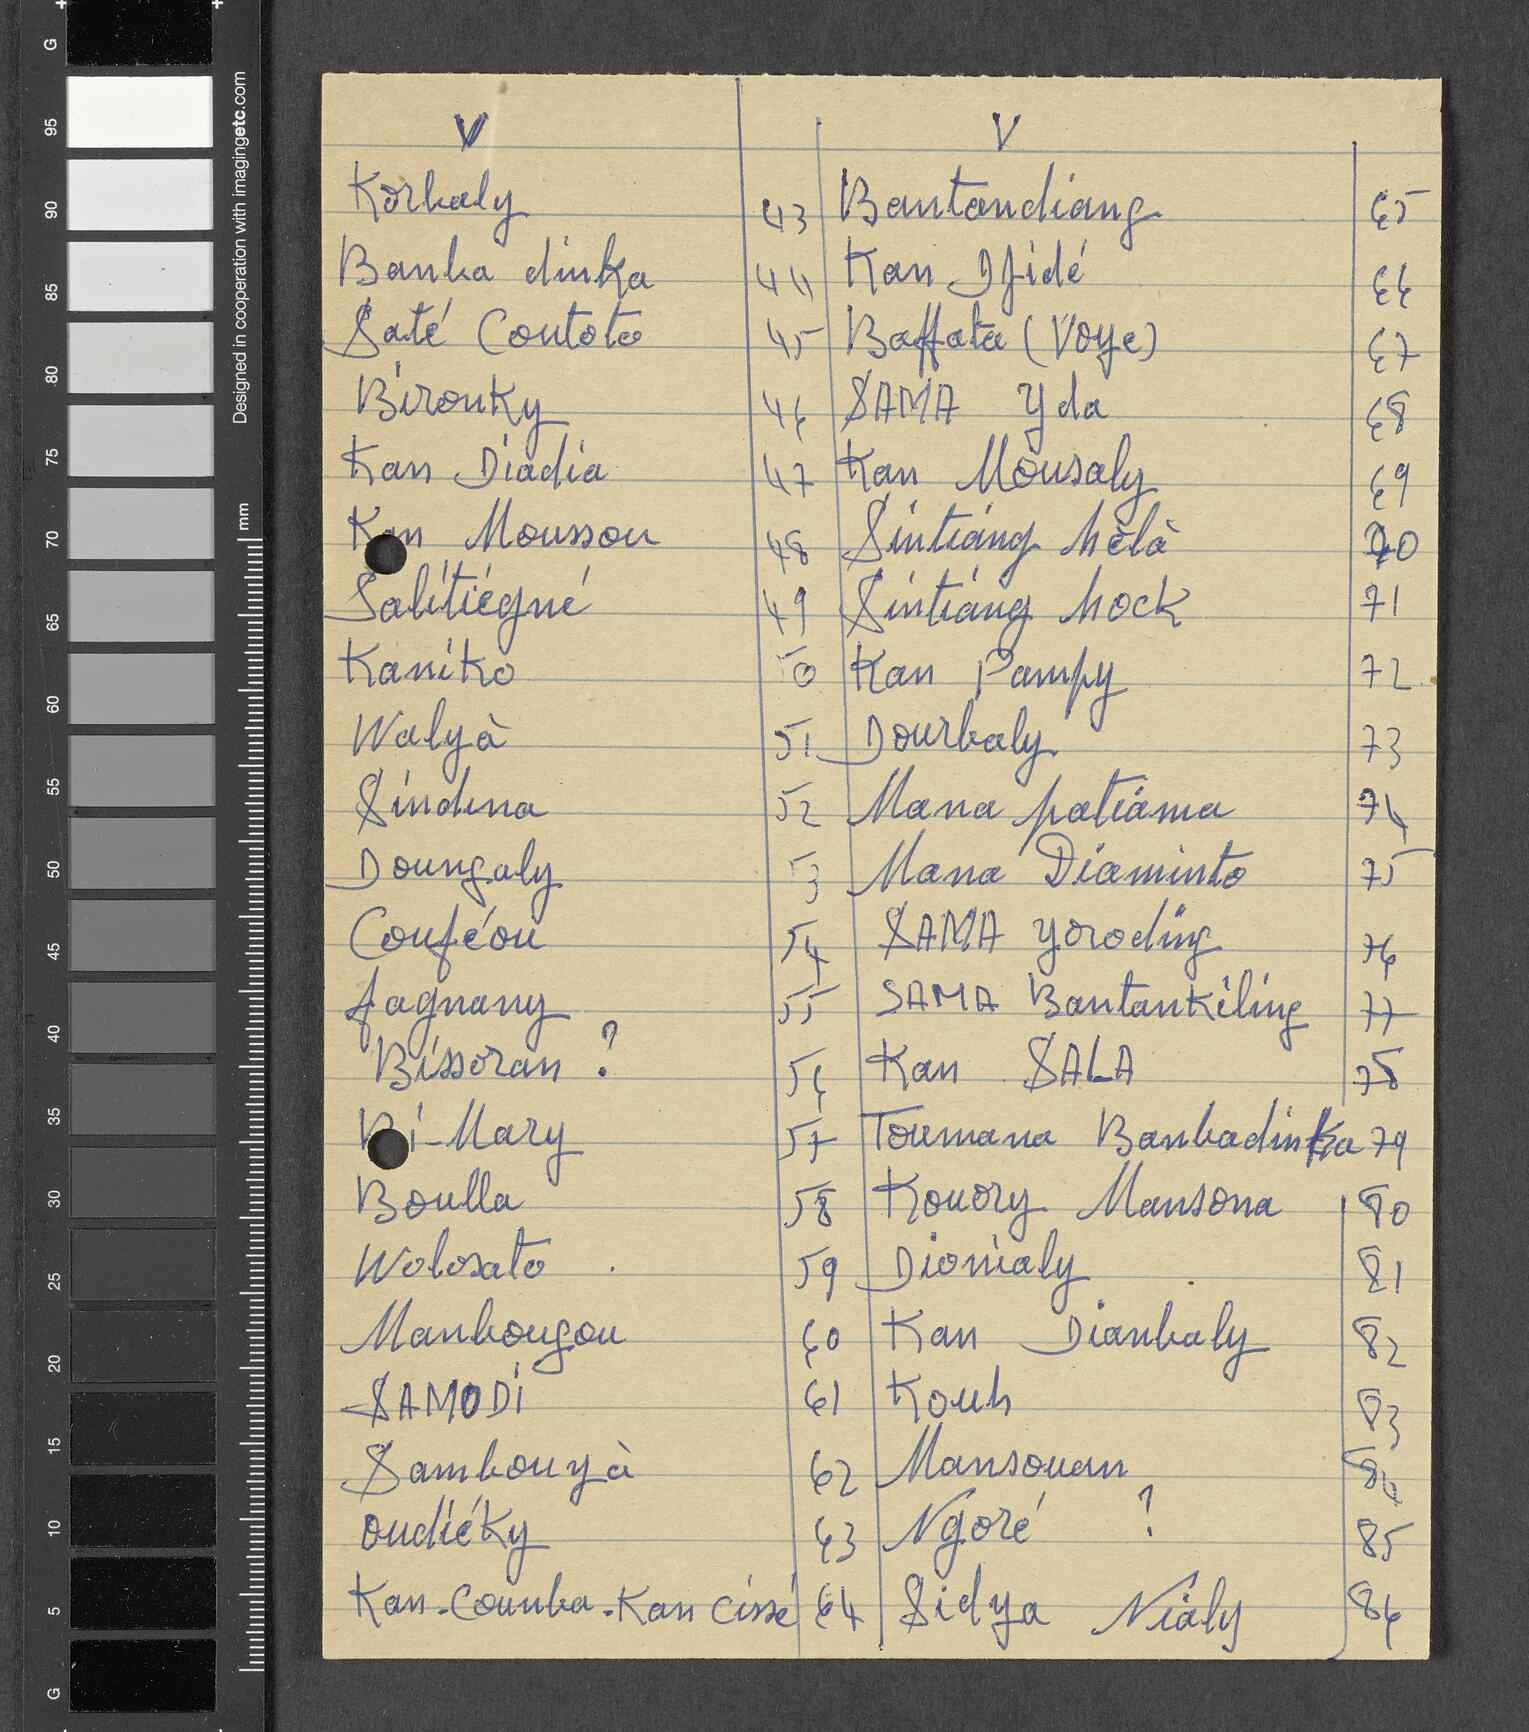 V
Korbaly 43
Banka dinka 44
Saté Coutoto 45
Bironky 46
Kan Diadia 47
Kan Moussou 48
Salitiégné 49
Kaniko 50
Walyà 51
Sindina 52
Doungaly 53
Couféou 54
fagnany 55
Bissoran ? 56
Bi-Mary 57
Boulla 58
Wolosato 59
Manbougou 60
SAMODI 61
Sambouyà 62
oudiéky 63
Kan-Coumba-Kan Cissé 64
V
Bantandiang 65
Kan Dfidé 66
Baffata (Voye) 67
SAMA Yda 68
Kan Mousaly 69
Sintiang hèlà 70
Sintiang hock 71
Kan Pampy 72
Dourbaly 73
Mana patiama 74
Mana Diaminto 75
SAMA Yoroding 76
SAMA Bantankiling 77
Kan SALA 78
Toumana Banbadinka 79
Kouory Mansona 80
Dionialy 81
Kan Dianbaly 82
Kouh 83
Mansouan 84
Ngoré ? 85
Sidya Nialy 86
G
95
90
85
80
75
70
65
60
55
50
45
40
35
30
25
20
15
10
5
G
Designed in cooperation with imagingetc.com
mm